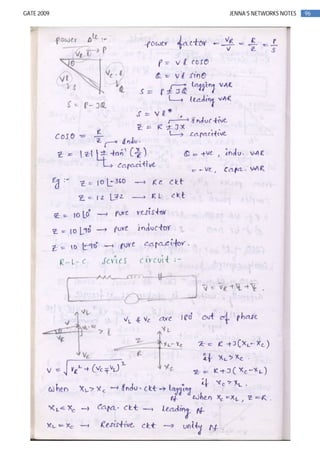 GATE 2009
JENNA'S NETWORKS NOTES 96
power Δle :-
power factor = VR/V = R/Z = P/S
P = VI cosθ
Q = VI sinθ
S = P ± JQ → lagging VAR
→ leading VAR
S = P - JQ
S = VI*
→ Inductive
Z = R ± JX
→ capacitive
cosθ = R/Z
→ Indu.
Z = |Z| ∠± tan⁻¹ (X/R)
→ Capacitive
Q = +ve , indu. VAR
= -ve , capa. VAR
Eg :- Z = 10 ∠-360 → RC ckt
Z = 12 ∠72 → RL ckt
Z = 10 ∠0° → pure resistor
Z = 10 ∠90° → pure inductor
Z = 10 ∠-90° → pure capacitor.
R-L-C. Series circuit :-
V = VR + VL + VC .
VL & VC are 180 out of phase
Z = R + J(XL - XC)
if XL > XC .
Z = R + J(XC - XL)
if XC > XL .
V = √VR² + (VC ∓ VL)²
When XL > XC → Indu. ckt → lagging Pf
When XC = XL , Z = R.
XL < XC → Capa. ckt → Leading Pf
XL = XC → Resistive ckt → unity Pf .